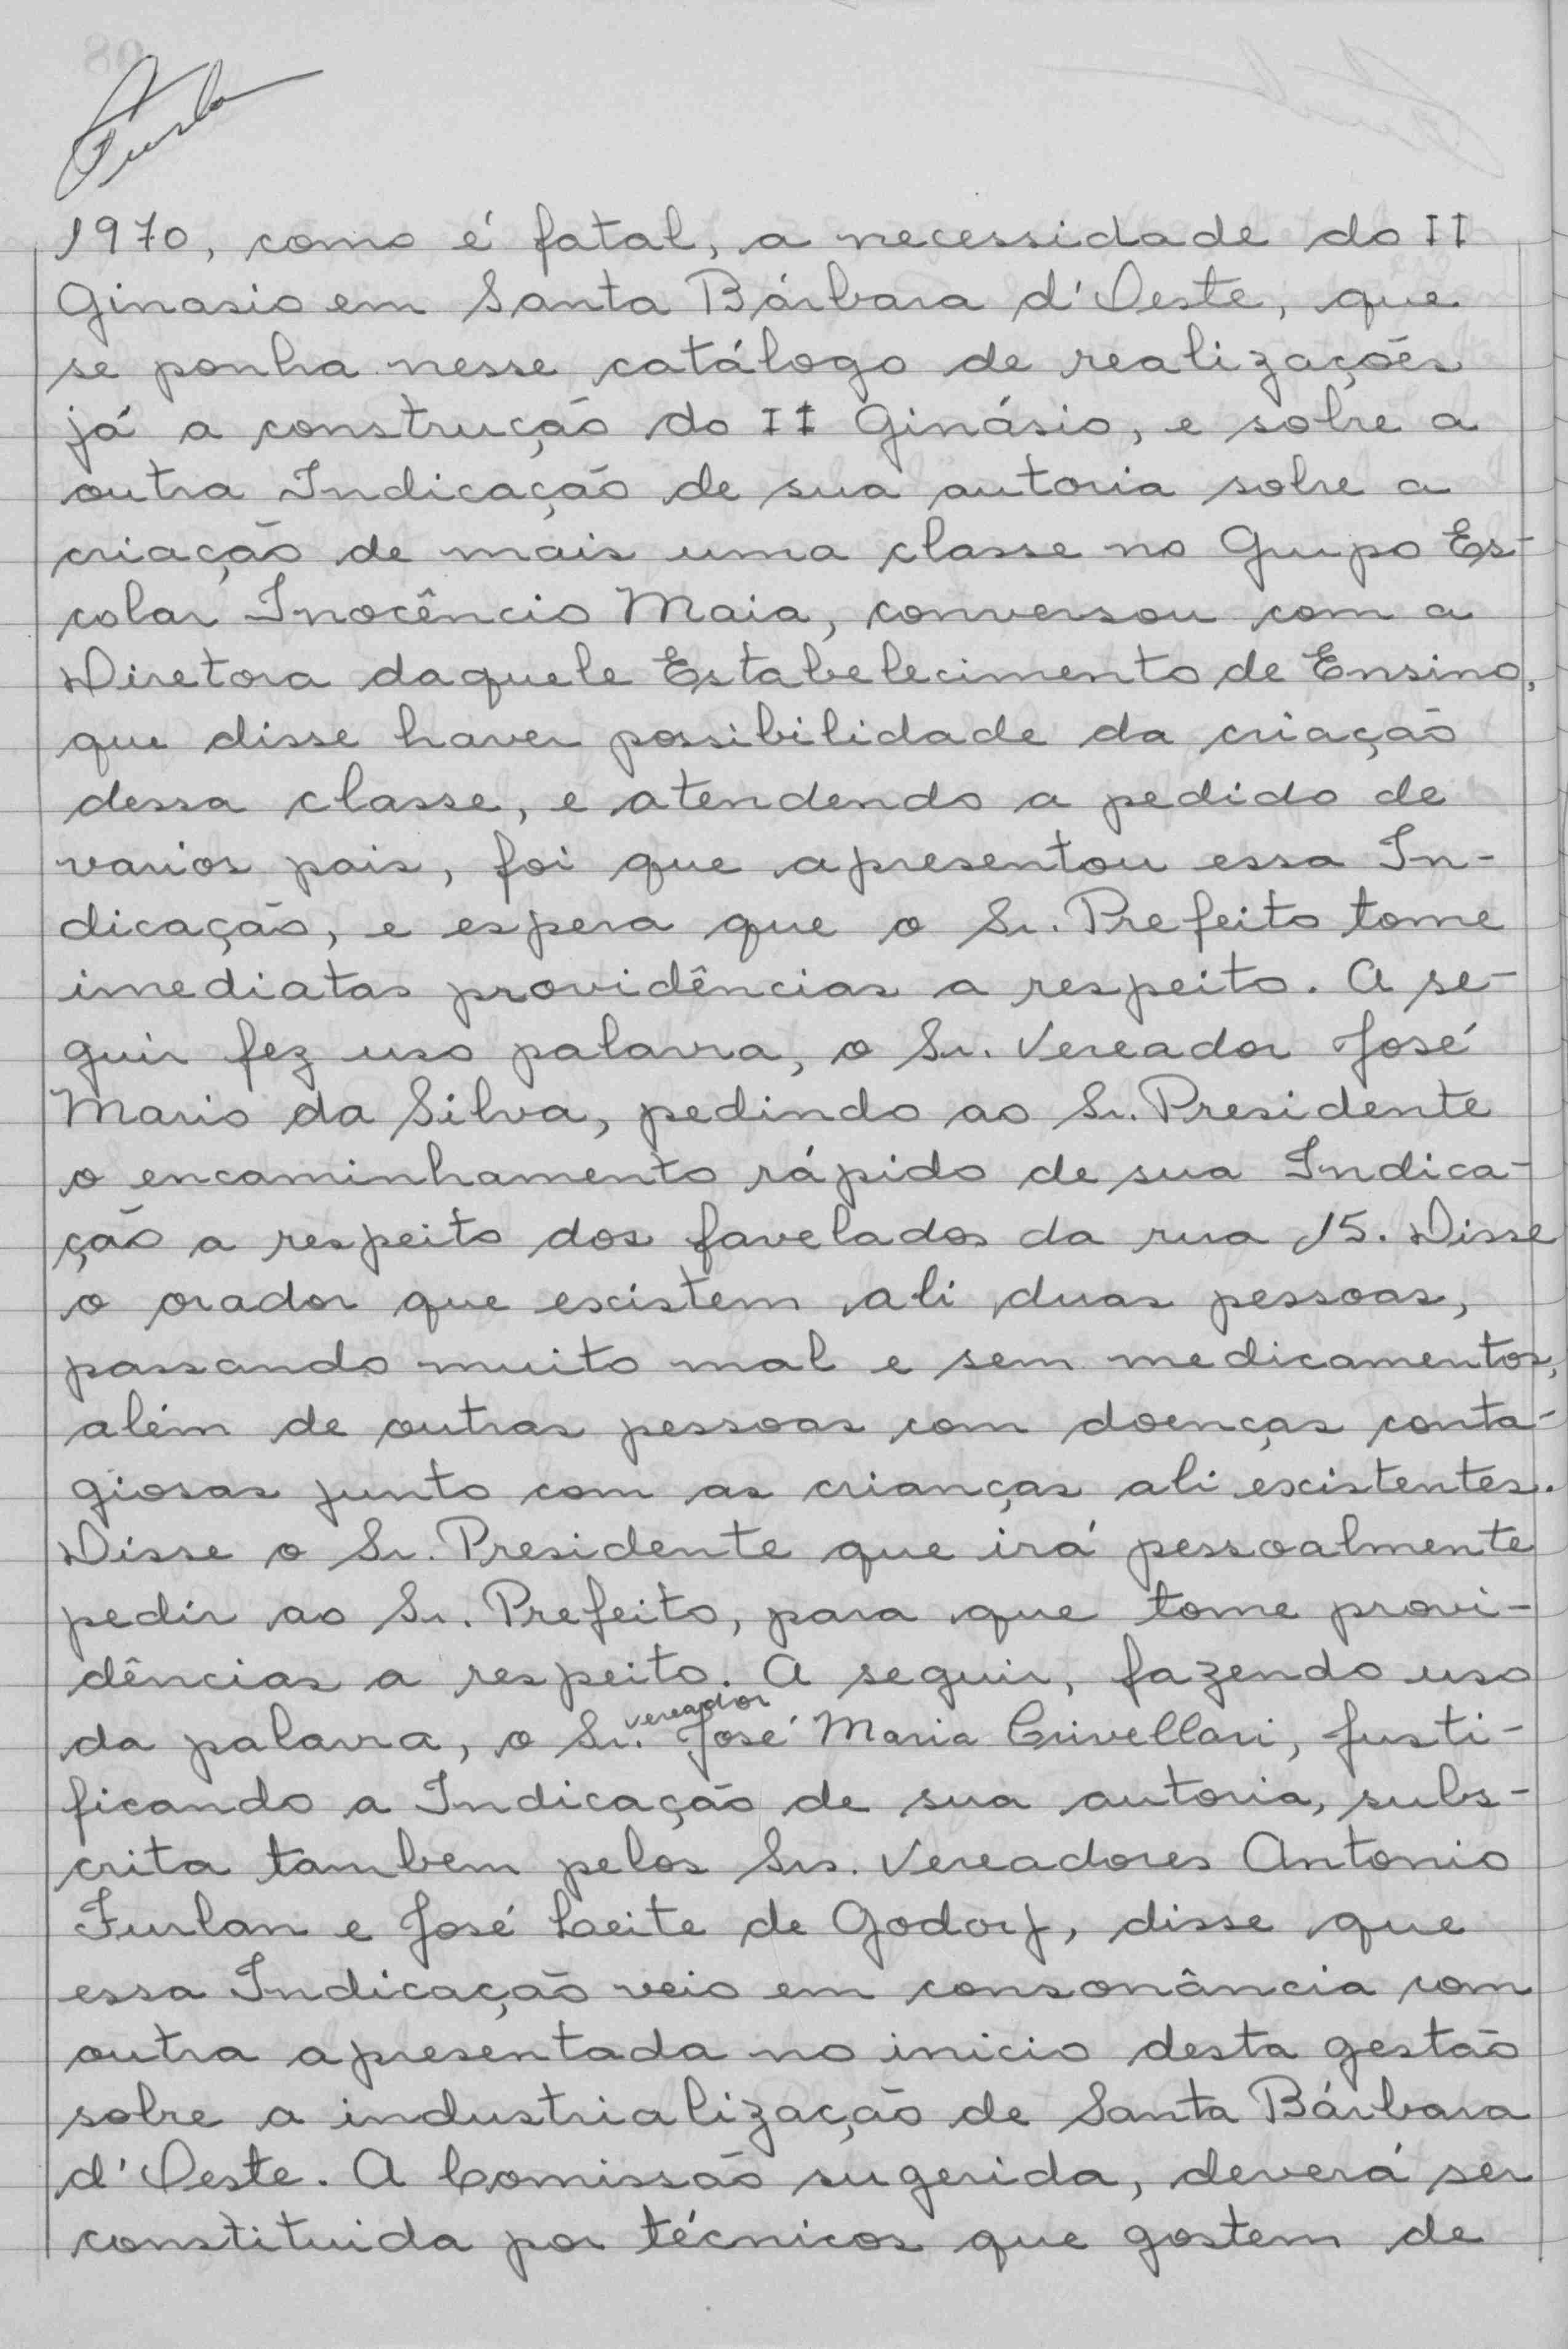 1970, como é fatal, a necessidade do II
Ginasio em Santa Bárbara d'Oeste, que
se ponha nesse catálogo de realizações
já a construção do II Ginásio, e sobre a
outra Indicação de sua autoria sobre a
criação de mais uma classe no Grupo Es-
colar Inocêncio Maia, conversou com a
Diretora daquele Estabelecimento de Ensino,
que disse haver possibilidade da criação
dessa classe, e atendendo a pedido de
varios pais, foi que apresentou essa In-
dicação, e espera que o Sr. Prefeito tome
imediatas providências a respeito. A se-
guir fez uso palavra, o Sr. Vereador José
Mario da Silva, pedindo ao Sr. Presidente
o encaminhamento rápido de sua Indica-
ção a respeito dos favelados da rua 15. Disse
o orador que existem ali duas pessoas,
passando muito mal e sem medicamentos,
além de outras pessoas com doenças conta-
giosas junto com as crianças ali existentes.
Disse o Sr. Presidente que irá pessoalmente
pedir ao Sr. Prefeito, para que tome provi-
dências a respeito. A seguir, fazendo uso
da palavra, o Sr. vereador José Maria Crivellari, justi-
ficando a Indicação de sua autoria, subs-
crita tambem pelos Srs. Vereadores Antonio
Furlan e José Leite de Godoy, disse que
essa Indicação veio em consonância com
outra apresentada no inicio desta gestão
sobre a industrialização de Santa Bárbara
d'Oeste. A Comissão sugerida, deverá ser
constituida por técnicos que gostem de